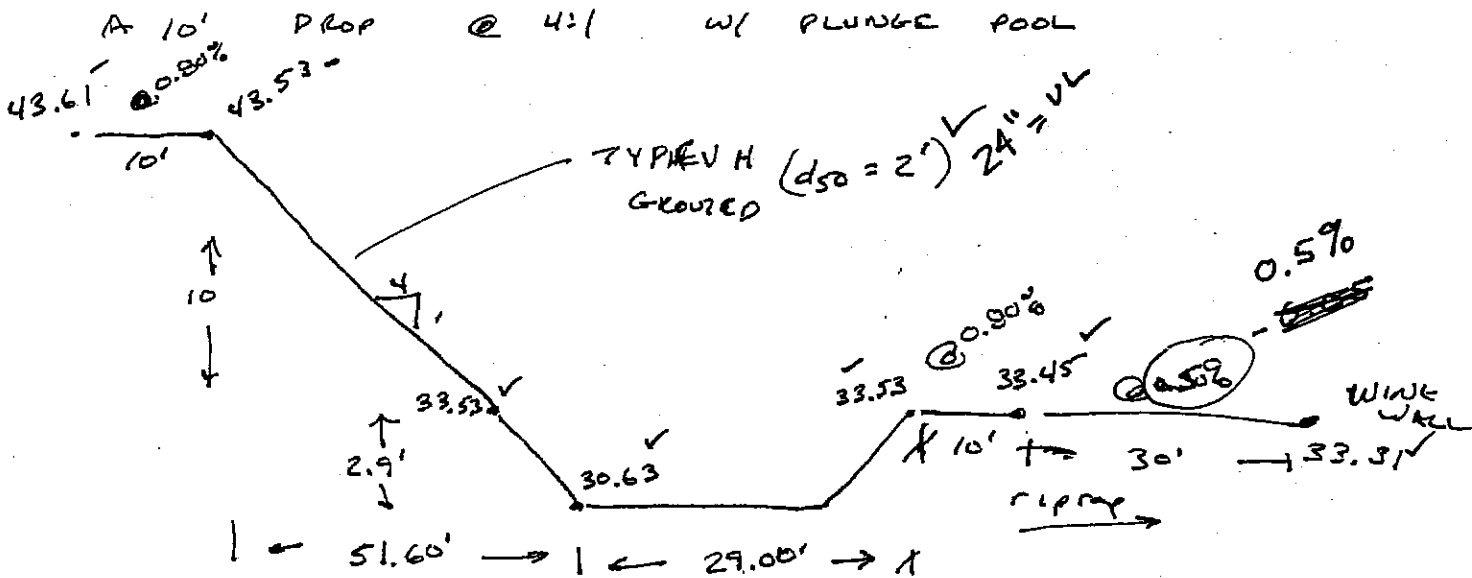 A 10' DROP @ 4:1 W/ PLUNGE POOL
43.61 ✓ @ 0.80% 43.53
10'
TYPE V H (d50 = 2') ✓ 24" = ✓
GROUTED
10
4
1
33.53 ✓
2.9'
30.63 ✓
33.53 ✓
@ 0.80%
33.45 ✓
10'
0.5%
@ 0.50%
30'
WING WALL
33.31 ✓
riprap
51.60'
29.00'